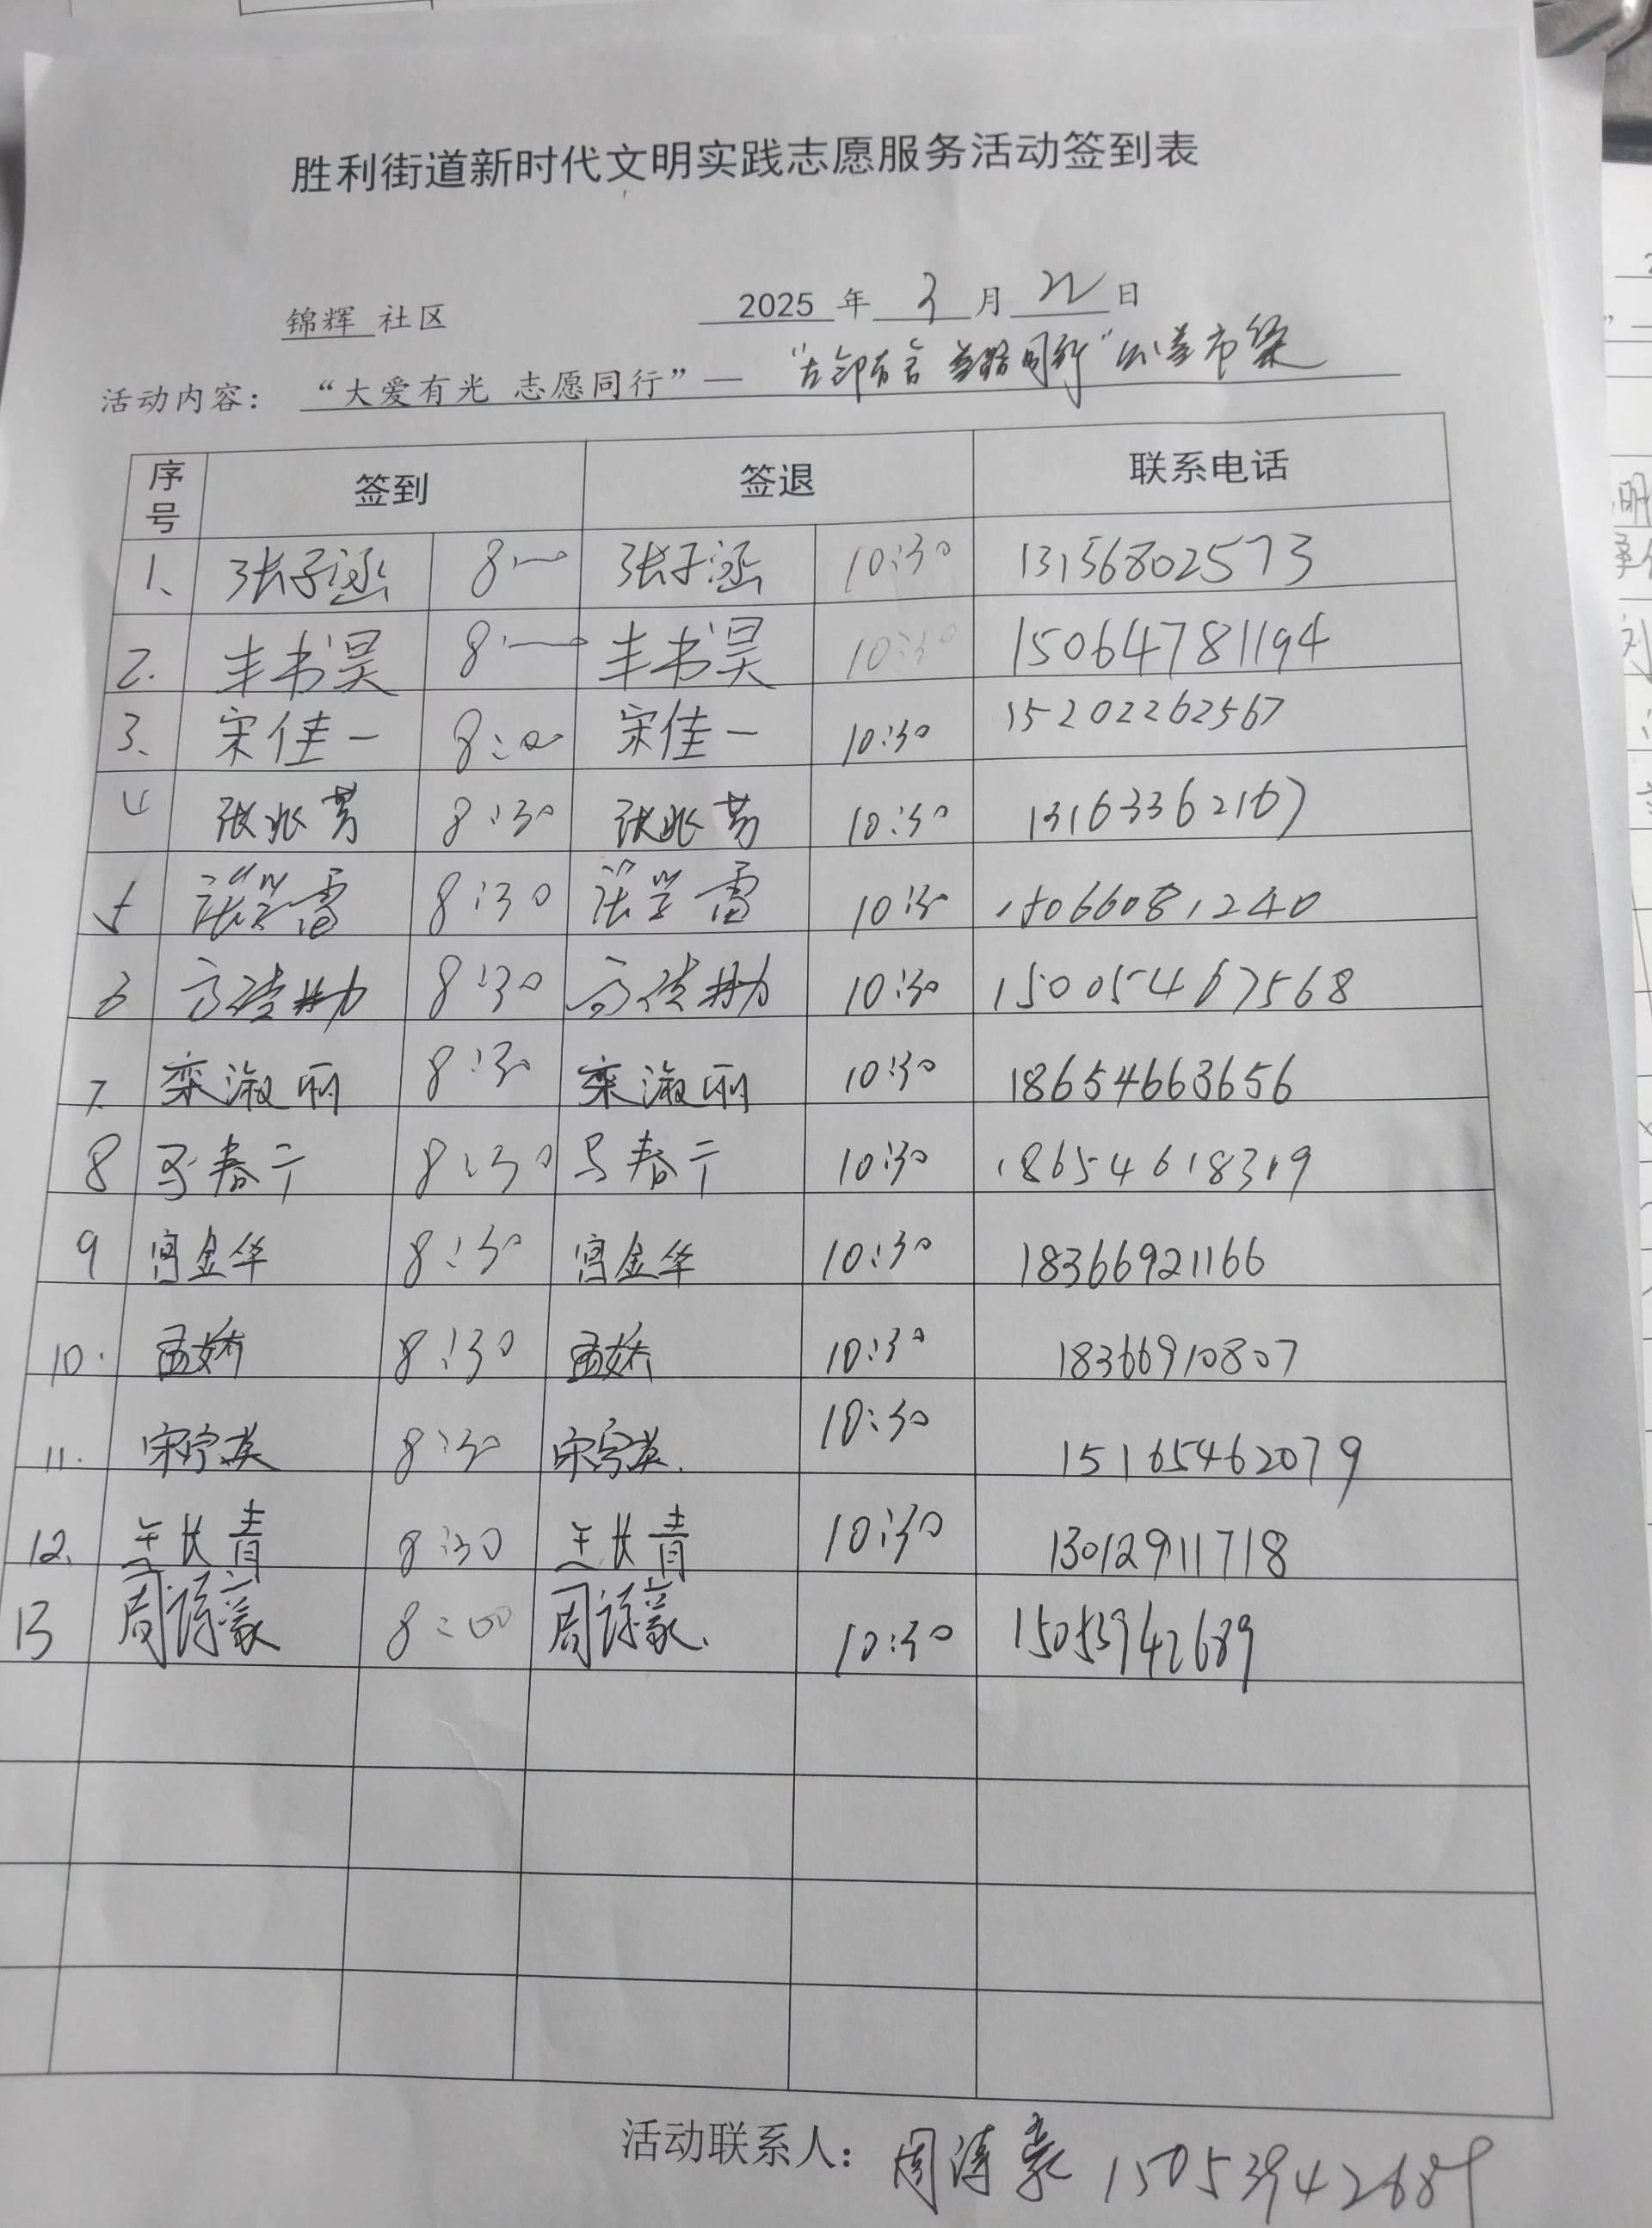 胜利街道新时代文明实践志愿服务活动签到表
锦辉 社区 2025 年 3 月 22 日
活动内容： “大爱有光 志愿同行”— 公益市集
序号 签到 签退 联系电话
1、 张子涵 8:00 张子涵 10:30 13156802573
2. 丰书昊 8:00 丰书昊 10:30 15064781194
3、 宋佳一 8:00 宋佳一 10:30 15202262567
4 张兆芳 8:30 张兆芳 10:30 13163362167
5 张学雷 8:30 张学雷 10:30 18066081240
6 8:30 10:30 15005467568
7. 栾淑丽 8:30 栾淑丽 10:30 18654663656
8 马春 8:30 马春 10:30 18654618319
9 宫金华 8:30 宫金华 10:30 18366921166
10. 孟娇 8:30 孟娇 10:30 18366910807
11. 宋宁英 8:30 宋宁英. 10:30 15165462079
12、 长青 8:30 长青 10:30 13012911718
13 周 8:00 周 10:30 15053942689
活动联系人： 周 15053942689